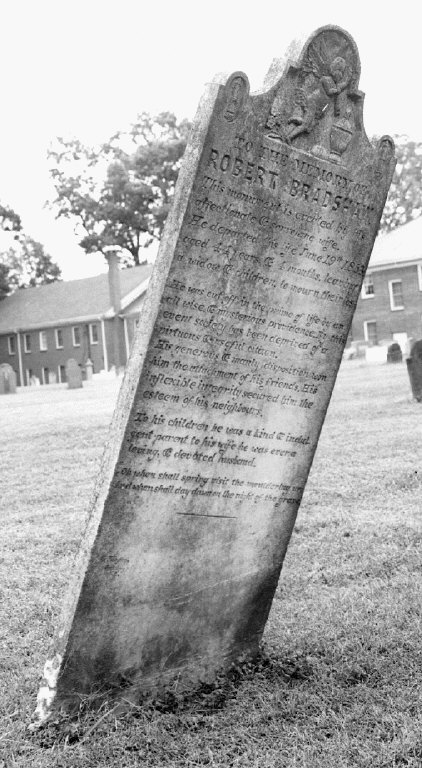 TO THE MEMORY OF
ROBERT BRADSHAW
This monument is erected by his
affectionate & surviving wife.
He departed this life June 19th
aged 42 years & months, leaving
a widow & children, to mourn their
He was cut off in the prime of life by an
all wise, & misterious providence, & the
event society has been deprived of a
virtuous & useful citizen.
His generous & manly disposition won
him the attachment of his friends. His
inflexible integrity secured him the
esteem of his neighbours.
To his children he was a kind & indul
gent parent to his wife he was ever a
loving, & devoted husband.
Oh when shall spring visit the mouldering urn
And when shall day dawn on the night of the grave